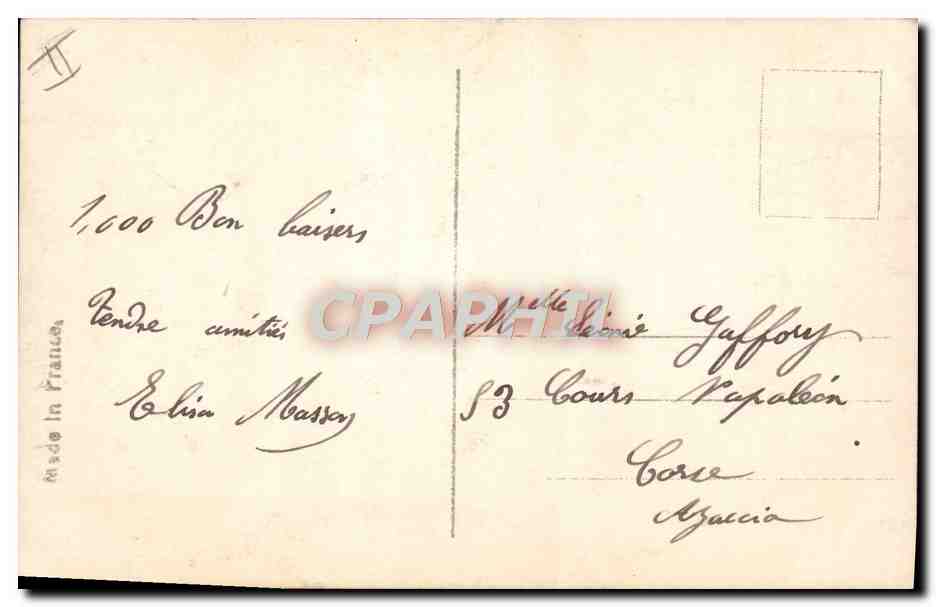 II
1,000 Bon baisers
Tendre amitiés
Elisa Masson
Made in France.
CPAPHIL
Mlle Léonie Gaffory
53 Cours Napoléon
Corse
Ajaccio